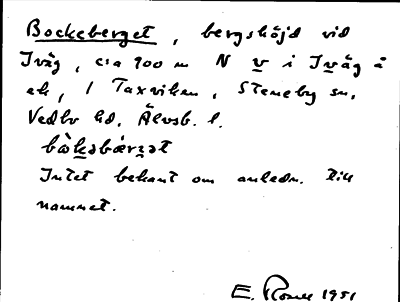 Bockeberget, bergshöjd vid
Iväg, c:a 900 m N v i Iväg å
ek, / Taxviken, Steneby sn,
Vedbo hd, Älvsb. l.
bòkabǽrgət
Intet bekant om anledn. till
namnet.
E. 1951